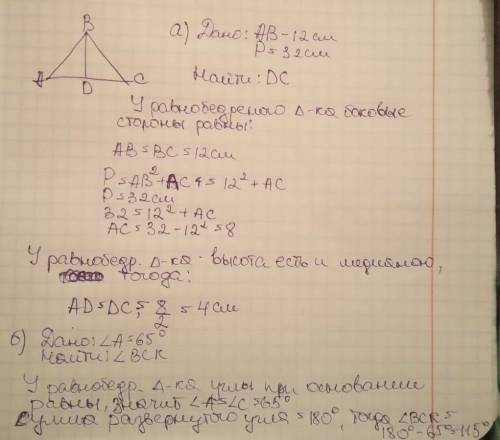 B
A
D
C
а) Дано: AB - 12 см
P = 32 см
Найти: DC
У равнобедреного Δ-ка боковые
стороны равны:
AB = BC = 12 см
P = AB² + AC = 12² + AC
P = 32 см
32 = 12² + AC
AC = 32 - 12² = 8
У равнобедр. Δ-ка высота есть и медианою,
тогода:
AD = DC = 8/2 = 4 см
б) Дано: ∠A = 65°
Найти: ∠BCK
У равнобедр. Δ-ка углы при основании
равны, значит ∠A = ∠C = 65°
Сумма развернутого угла = 180°, тогда ∠BCK =
180° - 65° = 115°